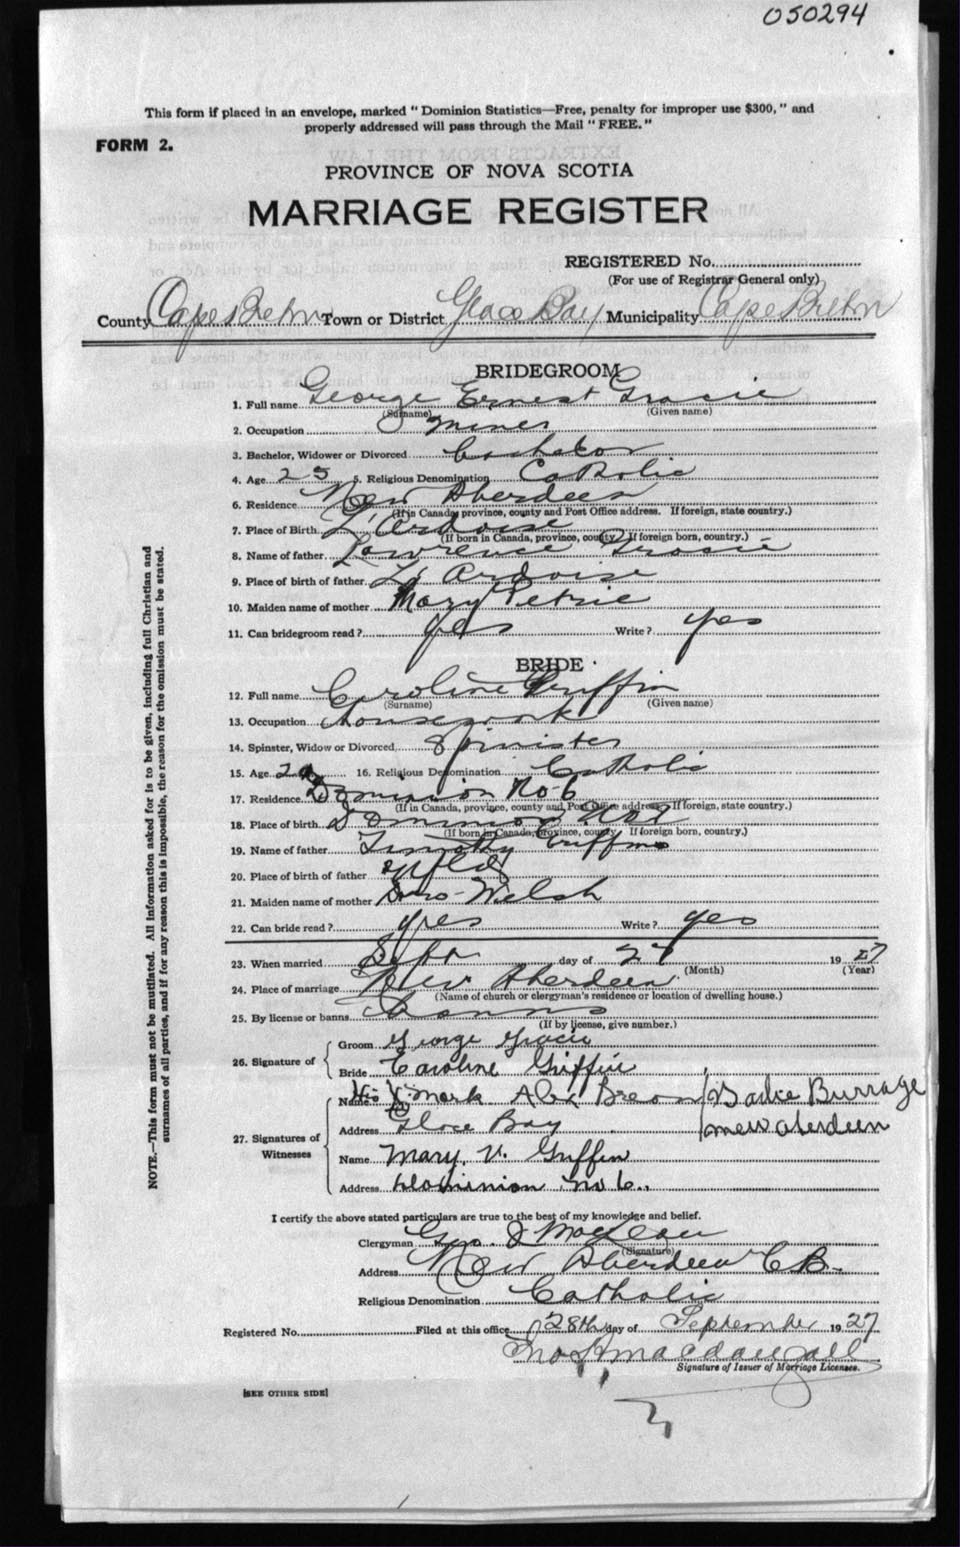 050294
This form if placed in an envelope, marked "Dominion Statistics—Free, penalty for improper use $300," and
properly addressed will pass through the Mail "FREE."
FORM 2.
PROVINCE OF NOVA SCOTIA
MARRIAGE REGISTER
REGISTERED No.
(For use of Registrar General only)
County Cape Breton Town or District Glace Bay Municipality Cape Breton
BRIDEGROOM
1. Full name George Ernest Gracie
(Surname) (Given name)
2. Occupation Miner
3. Bachelor, Widower or Divorced Bachelor
4. Age 25 5. Religious Denomination Catholic
6. Residence New Aberdeen
(If in Canada, province, county and Post Office address. If foreign, state country.)
7. Place of Birth L'Ardoise
(If born in Canada, province, county. If foreign born, country.)
8. Name of father Lawrence Gracie
9. Place of birth of father L'Ardoise
10. Maiden name of mother Mary Petrie
11. Can bridegroom read? yes Write? yes
BRIDE
12. Full name Caroline Griffin
(Surname) (Given name)
13. Occupation Housework
14. Spinster, Widow or Divorced Spinister
15. Age 16. Religious Denomination Catholic
17. Residence Dominion No-6
(If in Canada, province, county and Post Office address. If foreign, state country.)
18. Place of birth Dominion No
(If born in Canada, province, county. If foreign born, country.)
19. Name of father Timothy Griffin
20. Place of birth of father Nfld
21. Maiden name of mother Welsh
22. Can bride read? yes Write? yes
23. When married Sept day of 27 19 27
(Month) (Year)
24. Place of marriage New Aberdeen
(Name of church or clergyman's residence or location of dwelling house.)
25. By license or banns Banns
(If by license, give number.)
26. Signature of Groom George Gracie
Bride Caroline Griffin
27. Signatures of Witnesses
Name His X Mark Alex Burrage
Address Glace Bay New Aberdeen
Name Mary V. Griffin
Address Dominion No 6.
I certify the above stated particulars are true to the best of my knowledge and belief.
Clergyman Geo. J MacLean
(Signature)
Address New Aberdeen C.B.
Religious Denomination Catholic
Registered No. Filed at this office 28th day of September 1927
Macdougall
Signature of Issuer of Marriage Licenses.
[SEE OTHER SIDE]
NOTE.—This form must not be mutilated. All information asked for is to be given, including full Christian and
surnames of all parties, and if for any reason this is impossible, the reason for the omission must be stated.